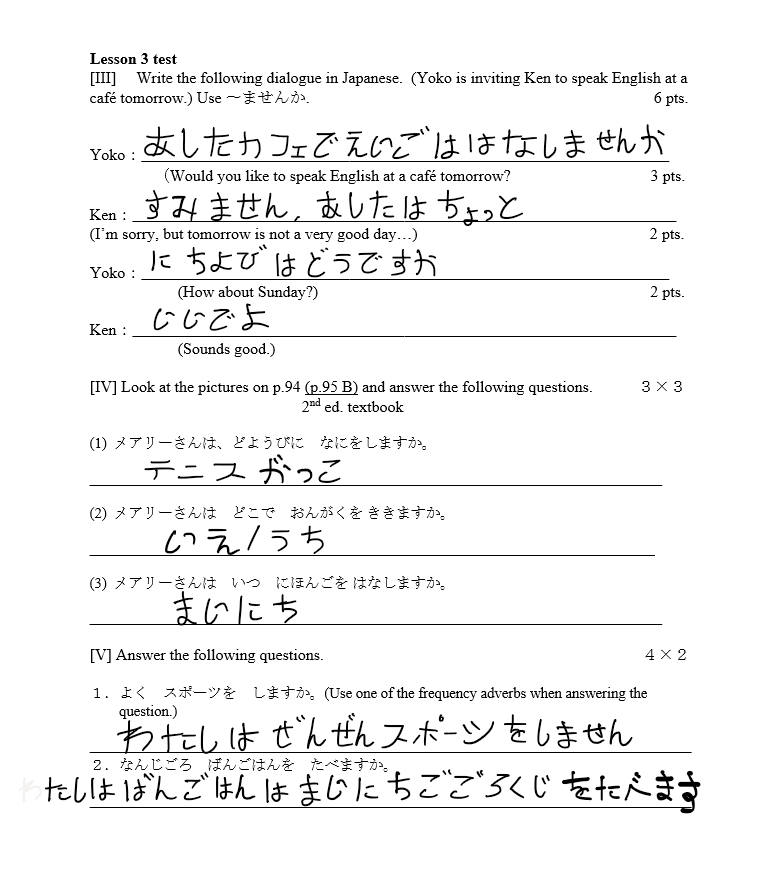 Lesson 3 test
[III] Write the following dialogue in Japanese. (Yoko is inviting Ken to speak English at a
café tomorrow.) Use ～ませんか. 6 pts.
Yoko : あしたカフェでえいごははなしませんか
(Would you like to speak English at a café tomorrow? 3 pts.
Ken : すみません, あしたはちょっと
(I'm sorry, but tomorrow is not a very good day…) 2 pts.
Yoko : にちよびはどうですか
(How about Sunday?) 2 pts.
Ken : いいでよ
(Sounds good.)
[IV] Look at the pictures on p.94 (p.95 B) and answer the following questions. 3 × 3
2nd ed. textbook
(1) メアリーさんは、どようびに なにをしますか。
テニス がっこ
(2) メアリーさんは どこで おんがくを ききますか。
いえ/うち
(3) メアリーさんは いつ にほんごを はなしますか。
まいにち
[V] Answer the following questions. 4 × 2
1. よく スポーツを しますか。(Use one of the frequency adverbs when answering the
question.)
わたしは ぜんぜんスポーツをしません
2. なんじごろ ばんごはんを たべますか。
わたしはばんごはんはまいにちごごろくじをたべます